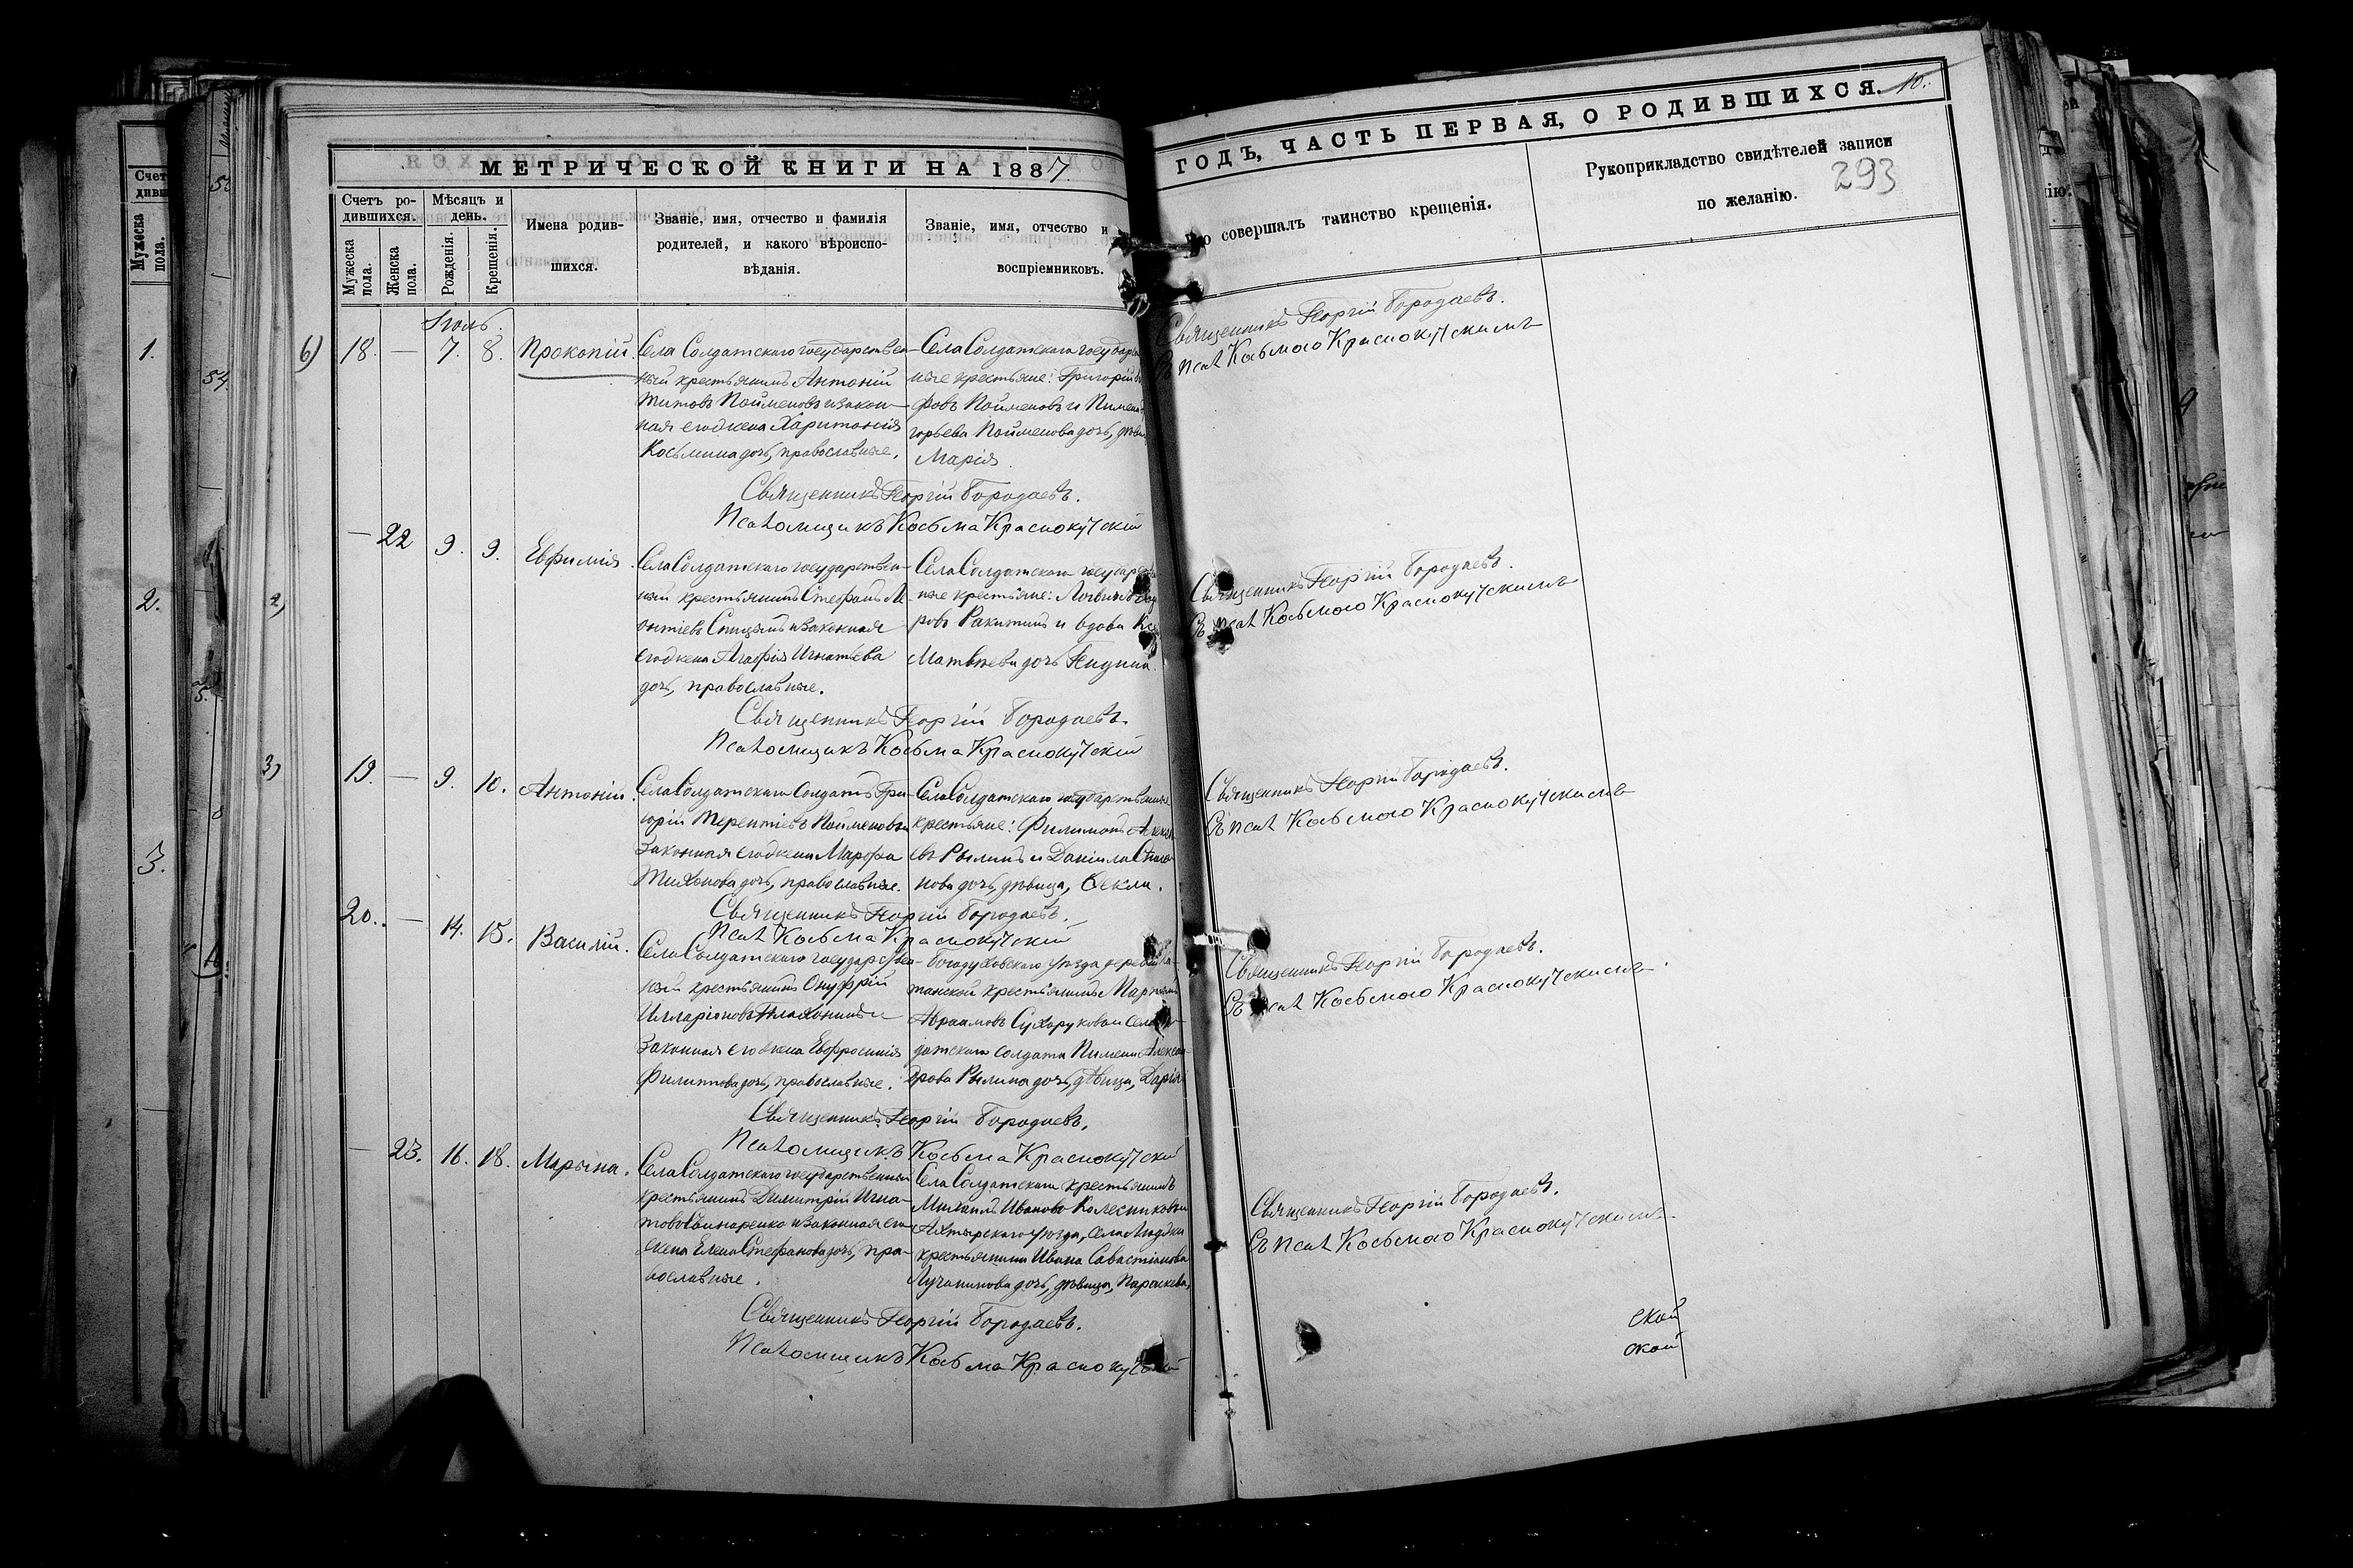 МЕТРИЧЕСКОЙ КНИГИ НА 1887
ГОДЪ, ЧАСТЬ ПЕРВАЯ, О РОДИВШИХСЯ. 10.
293
Счетъ ро-
дившихся.
Мужеска
пола.
Женска
пола.
Мѣсяцъ и
день.
Рожденія.
Крещенія.
Имена родив-
шихся.
Званіе, имя, отчество и фамилія
родителей, и какого вѣроиспо-
вѣданія.
Званіе, имя, отчество и
воспріемниковъ.
совершалъ таинство крещенія.
Рукоприкладство свидѣтелей записи
по желанію.
Іюль.
6) 18. — 7. 8. Прокопій.
Села Солдатскаго государствен-
ный крестьянинъ Антоній
Титовъ Пойменовъ и закон-
ная его жена Харитонія
Косьмина дочь, православные.
Села Солдатскаго государ
ные крестьяне: Григорій
ровъ Пойменовъ и Пимена
горьева Пойменова дочь, дѣви
Марія.
Священникъ Георгій Бородаевъ.
Съ псал Косьмою Краснокутскимъ
Священникъ Георгій Бородаевъ.
Псаломщикъ Косьма Краснокутскій
— 22 9. 9. Евфимія.
Села Солдатскаго государствен-
ный крестьянинъ Стефанъ Ле-
онтіевъ Спицынъ и законная
его жена Агафія Игнатьева
дочь, православные.
Села Солдатскаго государ
ные крестьяне: Логвинъ
ровъ Ракитинъ и вдова
Матвѣева дочь
Священникъ Георгій Бородаевъ.
Съ псал Косьмою Краснокутскимъ
Священникъ Георгій Бородаевъ.
Псаломщикъ Косьма Краснокутскій
3) 19. — 9. 10. Антоній.
Села Солдатскаго солдатъ Гри-
горій Терентіевъ Пойменовъ и
законная его жена Марфа
Тихонова дочь, православные.
Села Солдатскаго государственные
крестьяне: Филимонъ Алекс
евъ Рылинъ и Даніила
нова дочь, дѣвица, Ѳекла.
Священникъ Георгій Бородаевъ.
Съ псал Косьмою Краснокутскимъ
Священникъ Георгій Бородаевъ.
Псал Косьма Краснокутскій
20. — 14. 15. Василій.
Села Солдатскаго государствен-
ный крестьянинъ Онуфрій
Илларіоновъ и
законная его жена Евфросинія
Филиппова дочь, православные.
Богодуховскаго уѣзда дерев
танской крестьянинъ
Авраамовъ Сухоруковъ и села
датскаго солдата Пимена Алексан-
дрова Рылина дочь, дѣвица, Дарія
Священникъ Георгій Бородаевъ.
Съ псал Косьмою Краснокутскимъ.
Священникъ Георгій Бородаевъ.
Псаломщикъ Косьма Краснокутскій
— 23. 16. 18. Марина.
Села Солдатскаго государственный
крестьянинъ Димитрій Игна-
товъ Свинаренко и законная его
жена Елена Стефанова дочь, пра-
вославные.
Села Солдатскаго крестьянинъ
Михаилъ Ивановъ Колесниковъ и
Ахтырскаго уѣзда, села
крестьянина Ивана Савастіанова
дочь, дѣвица, Параскева.
Священникъ Георгій Бородаевъ.
Съ псал Косьмою Краснокутскимъ.
Священникъ Георгій Бородаевъ.
Псаломщикъ Косьма Краснокутскій
ской
ской
1.
2.
3.